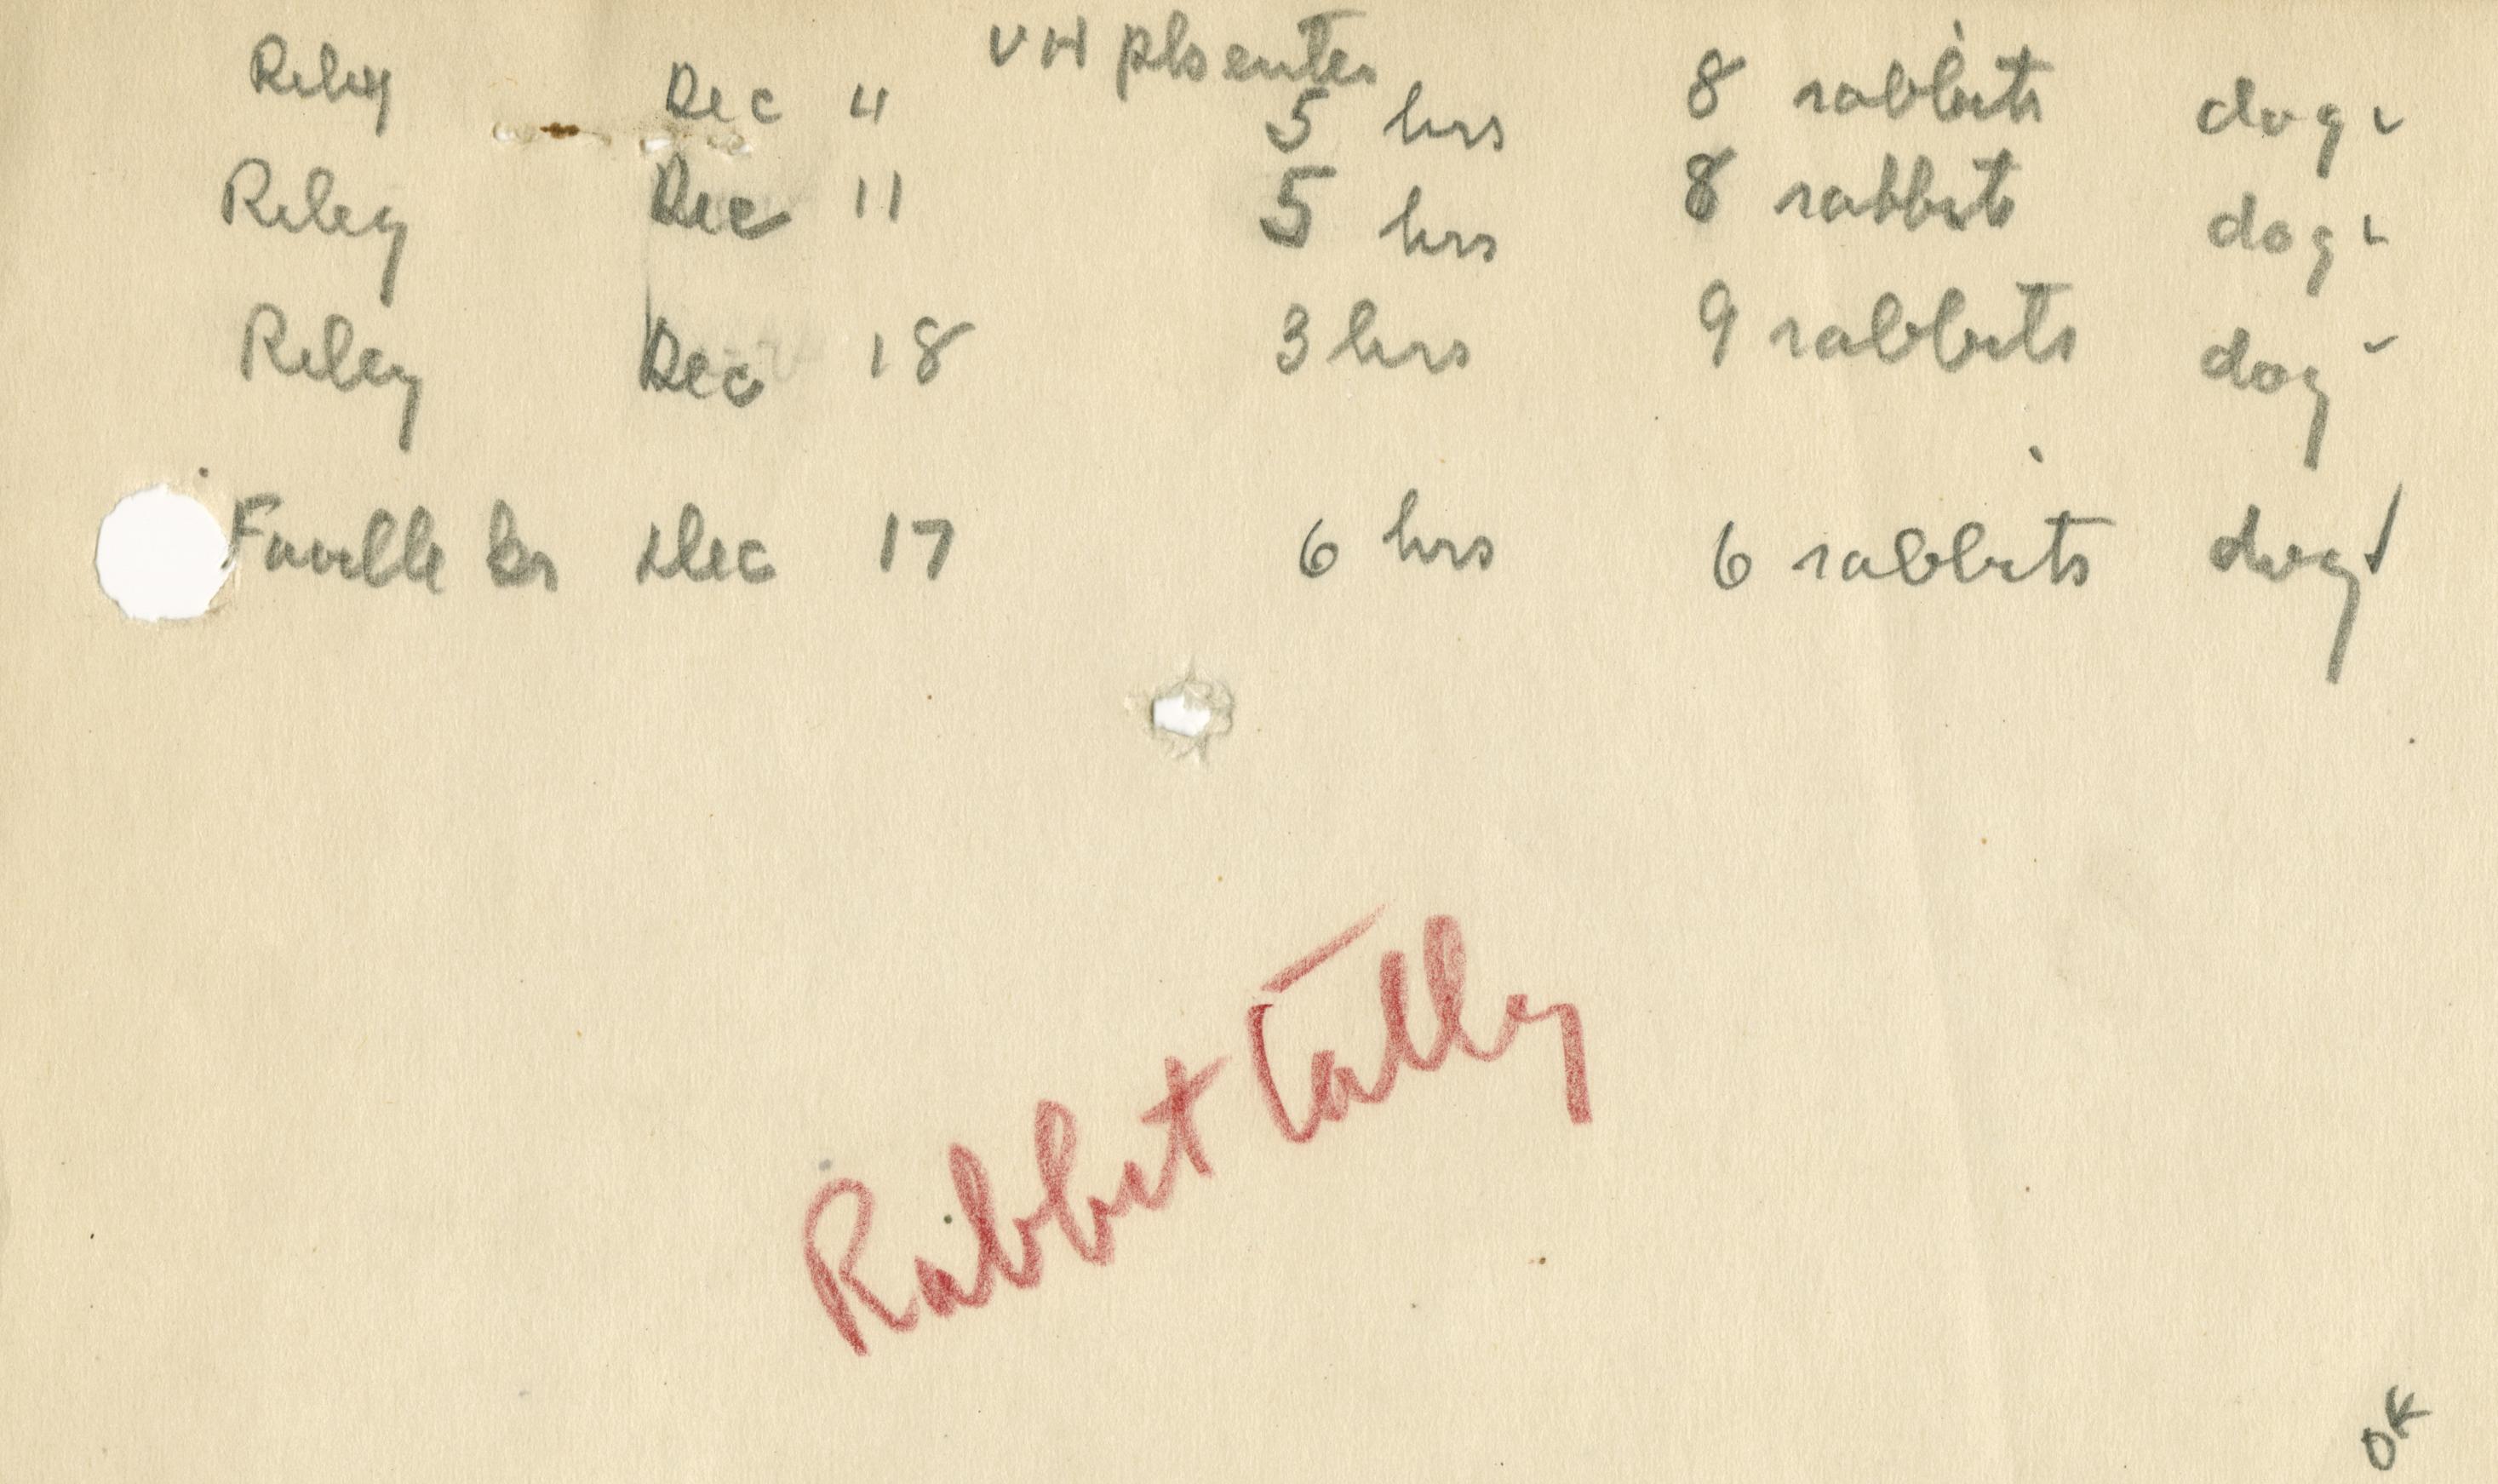 VH pls enter
Riley Dec 4 5 hrs 8 rabbits dog ✓
Riley Dec 11 5 hrs 8 rabbits dog ✓
Riley Dec 18 3 hrs 9 rabbits dog ✓
Faville Dec 17 6 hrs 6 rabbits dog ✓
Rabbit Tally
OK